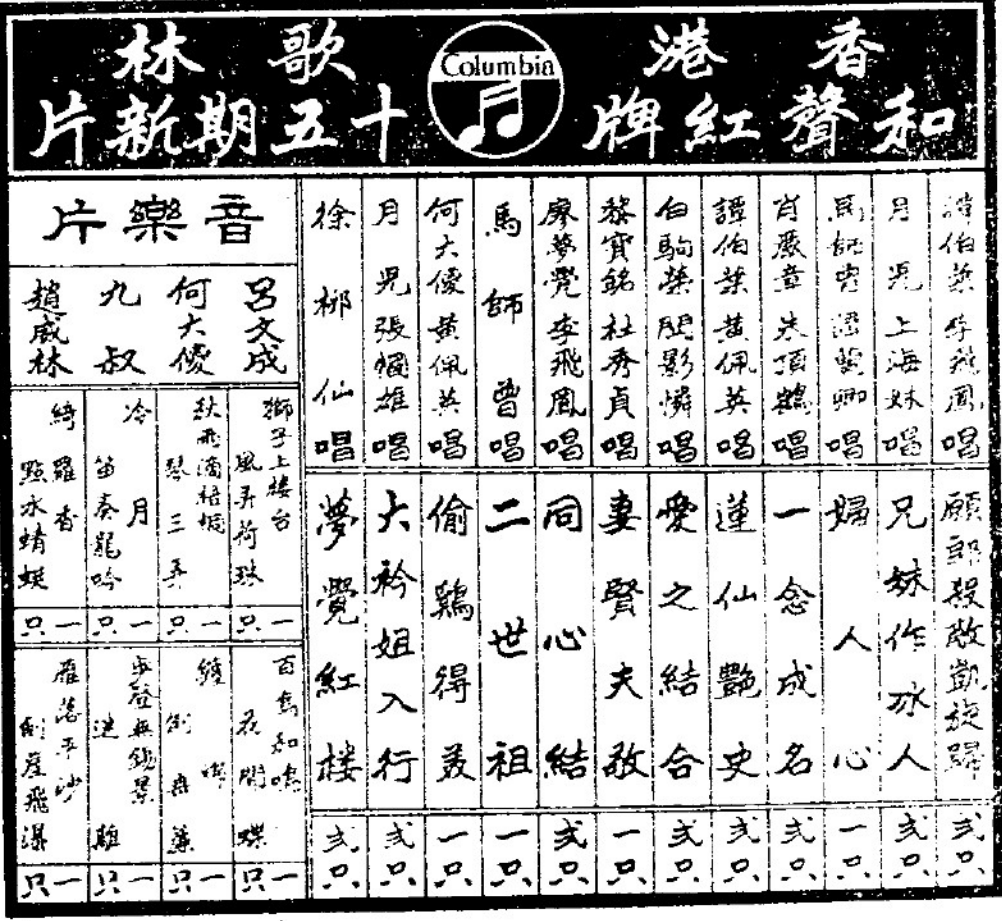 香港 歌林
Columbia
和聲紅牌 十五期新片
譚伯葉 李飛鳳 唱
願郎殺敵凱旋歸
弍只
月兒 上海妹 唱
兄妹作冰人
弍只
馬師曾 譚蘭卿 唱
婦人心
一只
肖嚴章 朱頂鶴 唱
一念成名
弍只
譚伯葉 黃佩英 唱
蓮仙艷史
弍只
白駒榮 胭影憐 唱
愛之結合
弍只
黎寳銘 杜秀貞 唱
妻賢夫敬
一只
廖夢覺 李飛鳳 唱
同心結
弍只
馬師曾 唱
二世祖
一只
何大傻 黃佩英 唱
偷鷄得美
一只
月兒 張 雄 唱
大衿姐入行
弍只
徐柳仙 唱
夢覺紅樓
弍只
音樂片
呂文成
何大傻
九叔
趙威林
獅子上樓台
風弄荷珠
一只
秋雨滴梧桐
琴三弄
一只
冷月
笛奏龍吟
一只
綺羅香
點水蜻蜓
一只
百鳥和鳴
花間蝶
一只
一只
迷離
一只
雁落平沙
崖飛瀑
一只